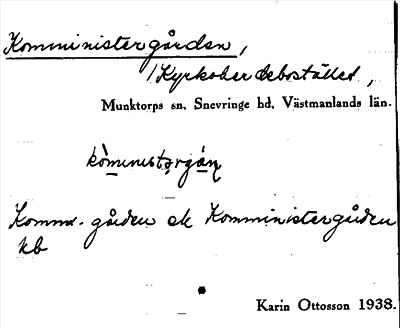 Komministergården,
/Kyrkoherdebostället,
Munktorps sn, Snevringe hd, Västmanlands län.
kòministərgán
Komm. gården ek Komministergården
kb
Karin Ottosson 1938.